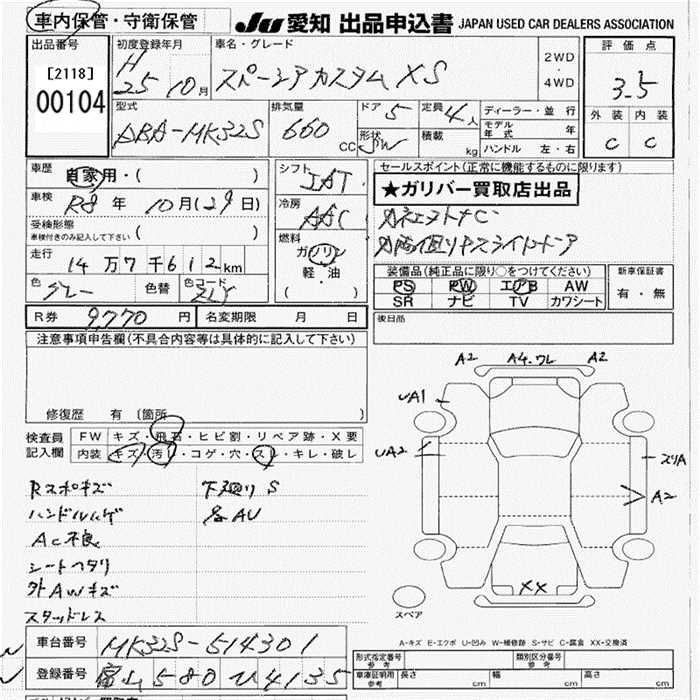 車内保管・守衛保管 JU 愛知 出品申込書 JAPAN USED CAR DEALERS ASSOCIATION
出品番号 初度登録年月 車名・グレード 評価点
[2118] H 25 10月 スペーシアカスタム XS 2WD・4WD 3.5
00104 型式 排気量 ドア 5 定員 4人 ディーラー・並行 外装 内装
ABA-MK32S 660 CC 形状 SW 積載 kg モデル年式 年 C C
ハンドル 左・右
車歴 自家用・( ) シフト IAT セールスポイント(正常に機能するものに限ります)
車検 R8年 10月(29日) 冷房 AAC ★ガリバー買取店出品
受検形態 車検付きのみ記入して下さい ( )
走行 14万7千612km 燃料 ガソリン 軽・油 ( )
色 グレー 色替 色コード ZLJ
装備品(純正品に限り○をつけてください) 新車保証書
PS PW エアB AW 有・無
SR ナビ TV カワシート
R券 9,770円 名変期限 月 日 後日品
注意事項申告欄(不具合内容等は具体的に記入して下さい)
修復歴 有 〔箇所
検査員記入欄 FW キズ・飛石・ヒビ割・リペア跡・X要
内装 キズ・汚レ・コゲ・穴・スレ・キレ・破レ
A2 A4.ワレ A2
UA1
UA2
スリA
A2
XX
スペア
Rスポキズ 下廻りS
ハンドルハゲ 各AU
AC不良
シートヘタリ
外AWキズ
スタッドレス
A-キズ E-エクボ U-凹み W-補修跡 S-サビ C-腐食 XX-交換済
車台番号 MK32S-514301
登録番号 富山580ひ4135
形式指定番号 参考 類別区分番号 参考
車庫証明用 参考 長さ cm 幅 cm 高さ cm